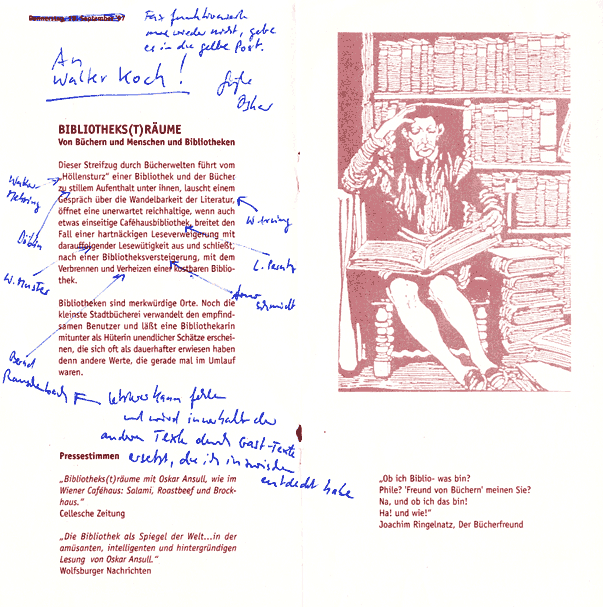 Donnerstag, 25. September 97
Fax funktioniert
mal wieder nicht, gebe
es in die gelbe Post.
An
Walter Koch!
Grüße
Oskar
BIBLIOTHEKS(T)RÄUME
Von Büchern und Menschen und Bibliotheken
Dieser Streifzug durch Bücherwelten führt vom
„Höllensturz" einer Bibliothek und der Bücher
zu stillem Aufenthalt unter ihnen, lauscht einem
Gespräch über die Wandelbarkeit der Literatur,
öffnet eine unerwartet reichhaltige, wenn auch
etwas einseitige Caféhausbibliothek, breitet den
Fall einer hartnäckigen Leseverweigerung mit
darauffolgender Lesewütigkeit aus und schließt,
nach einer Bibliotheksversteigerung, mit dem
Verbrennen und Verheizen einer kostbaren Biblio-
thek.
Walter
Mehring
Döblin
W. Muster
W. Irving
L. Perutz
Arno
Schmidt
Bibliotheken sind merkwürdige Orte. Noch die
kleinste Stadtbücherei verwandelt den empfind-
samen Benutzer und läßt eine Bibliothekarin
mitunter als Hüterin unendlicher Schätze erschei-
nen, die sich oft als dauerhafter erwiesen haben
denn andere Werte, die gerade mal im Umlauf
waren.
Bernd
Rauschenbach
letzterer kann fehlen
und wird innerhalb der
anderen Texte durch Gast-Texte
ersetzt, die ich inzwischen
entdeckt habe
Pressestimmen
„Bibliotheks(t)räume mit Oskar Ansull, wie im
Wiener Caféhaus: Salami, Roastbeef und Brock-
haus."
Cellesche Zeitung
„Die Bibliothek als Spiegel der Welt...in der
amüsanten, intelligenten und hintergründigen
Lesung von Oskar Ansull."
Wolfsburger Nachrichten
„Ob ich Biblio- was bin?
Phile? 'Freund von Büchern' meinen Sie?
Na, und ob ich das bin!
Ha! und wie!"
Joachim Ringelnatz, Der Bücherfreund